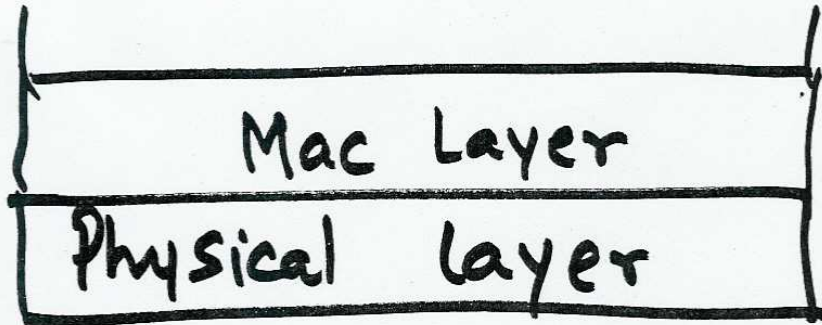 Mac Layer
Physical layer